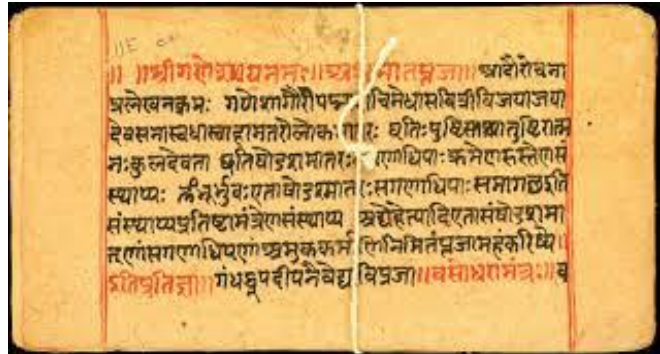 ॥ ॥श्रीगणेशायनमः॥अथमातृपूजा॥ आदौरोचना
प्रलेखनक्रमः गणेशगौरीपद्माशचीमेधासवित्रीविजयाजया
देवसेनास्वधास्वाहामातरोलोकमातरः धृतिःपुष्टिस्तथातुष्टिरात्म
नःकुलदेवता इतिषोडशमातरः गणाधिपाःक्रमेणहस्तेणसं
स्थाप्यः ॐभूर्भुवःएताषोडशमातरःसगणाधिपाःसमागछइति
संस्थाप्यप्रतिष्टामंत्रेणसंस्थाप्य अद्येहेत्यादिएतासंषोडशमा
तृणांसगणाधिपाणां अमुककर्मणिनिमितंपूजामहंकरिष्ये॥
इतिप्रतिज्ञा॥गंधधूपदीपनैवेद्य विपूजा॥वसोधारामंत्रः॥व